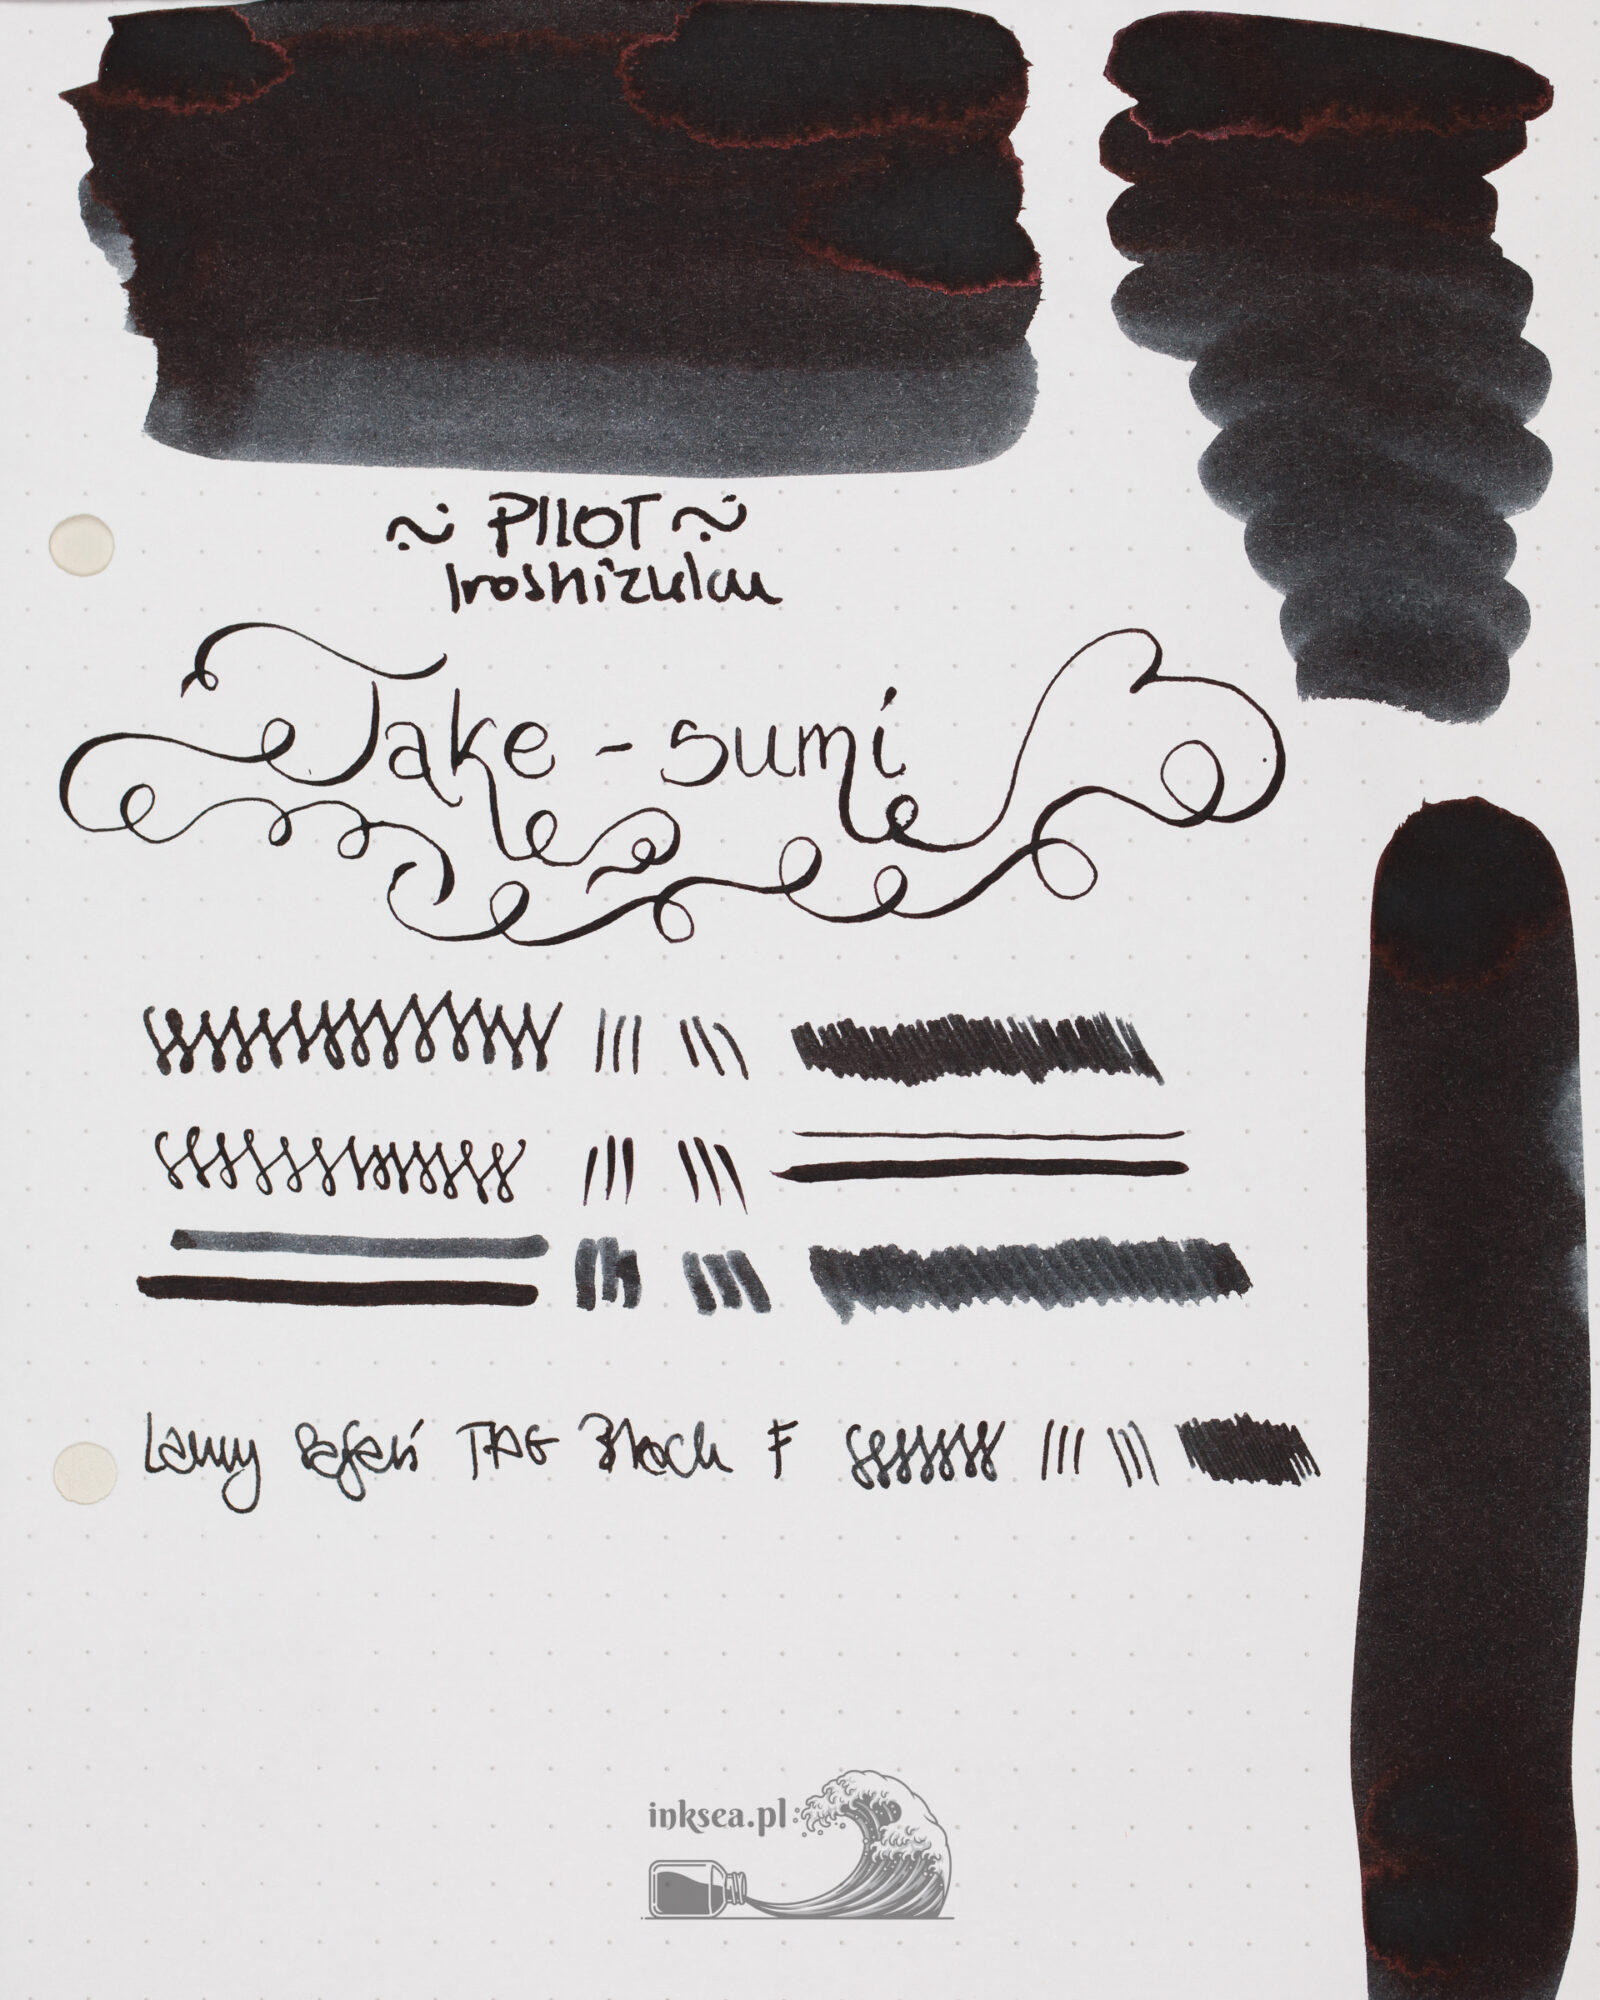 ~ PILOT ~
Iroshizuku
Take-sumi
Lamy Safari TAG Black F
inksea.pl